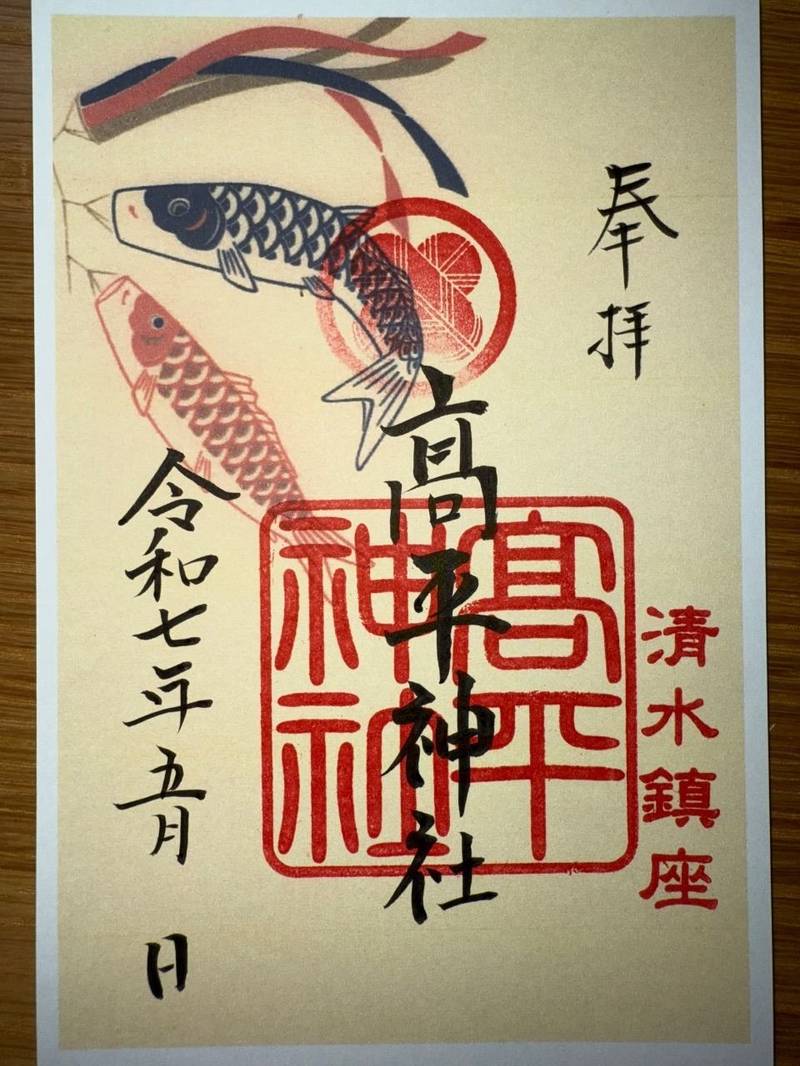 奉拝
清水鎮座
髙平神社
髙平
神社
令和七年五月 日